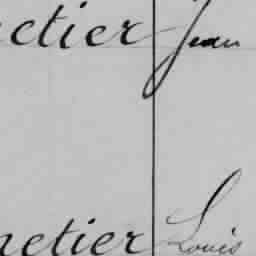 etier Jean
netier Louis